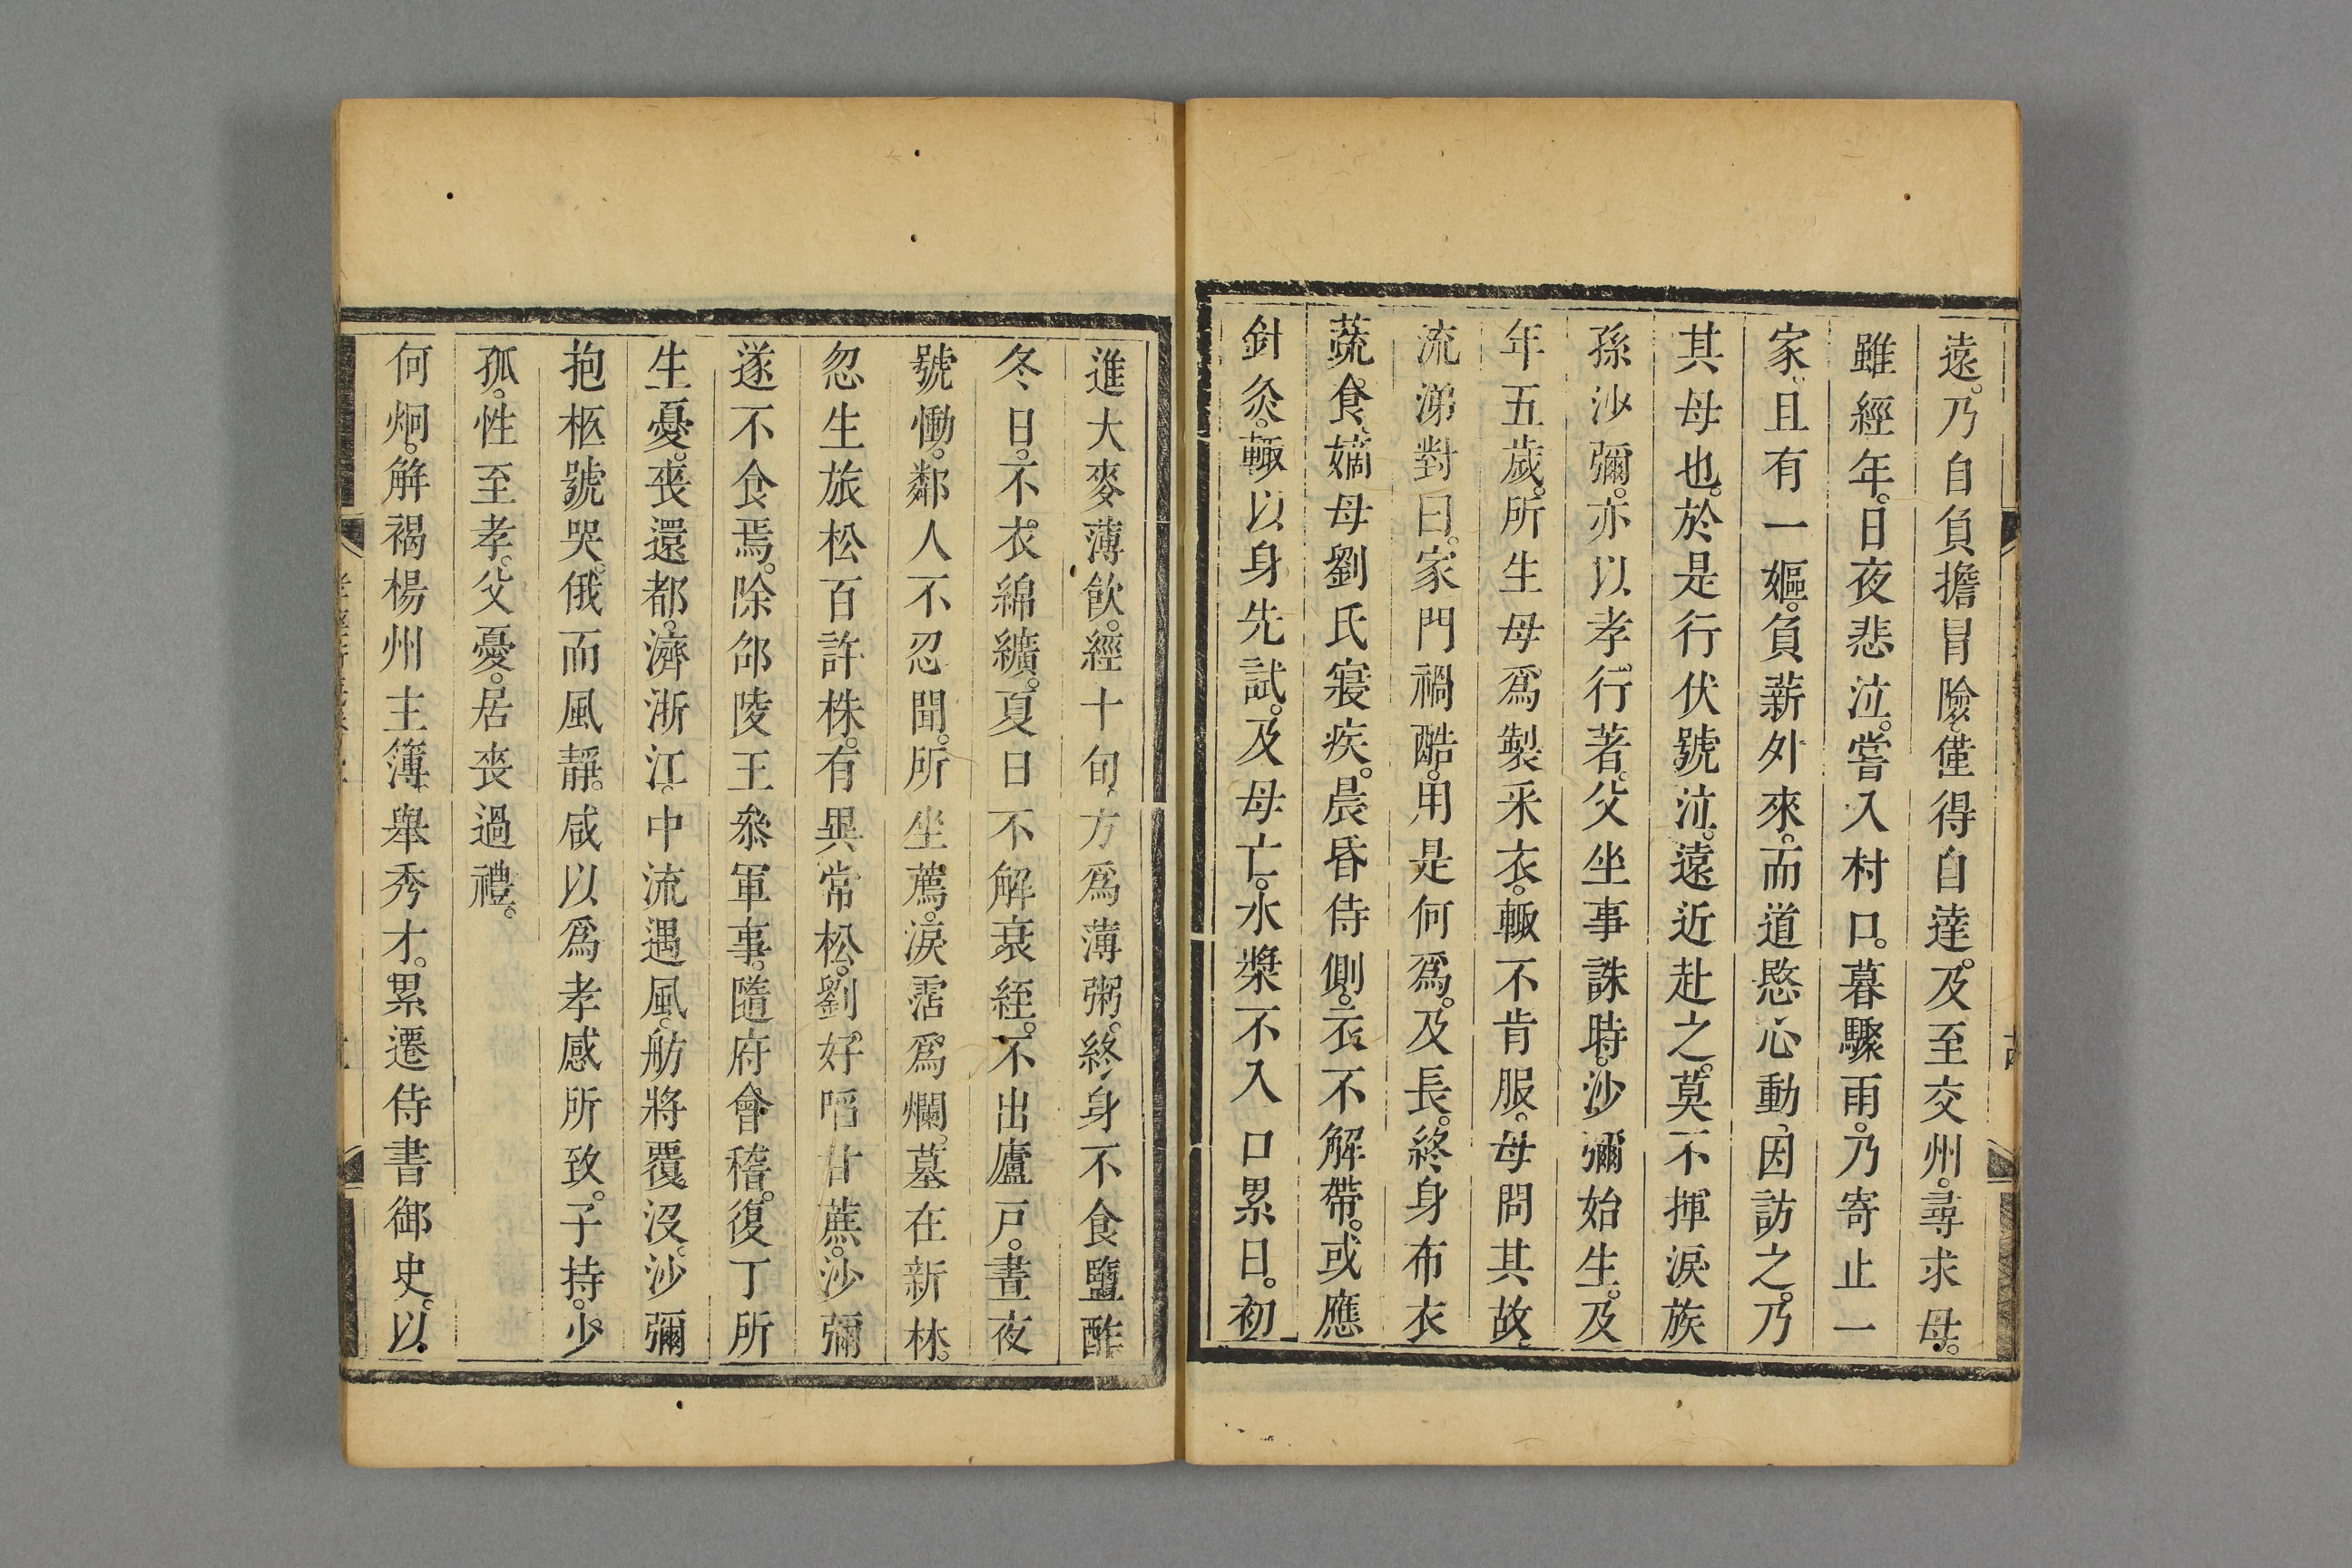 遠。乃自負擔冒險。僅得自達。及至交州。尋求母。
雖經年。日夜悲泣。嘗入村口。暮驟雨。乃寄止一
家。且有一嫗。負薪外來。而道愍心動。因訪之。乃
其母也。於是行伏號泣。遠近赴之。莫不揮淚。族
孫沙彌。亦以孝行著。父坐事誅時。沙彌始生。及
年五歲。所生母爲製采衣。輙不肯服。母問其故。
流涕對曰。家門禍酷。用是何爲。及長。終身布衣
蔬食。嫡母劉氏寢疾。晨昏侍側。衣不解帶。或應
針灸。輙以身先試。及母亡。水漿不入口累日。初
進大麥薄飲。經十旬。方爲薄粥。終身不食鹽酢
冬日。不衣綿纊。夏日不解衰絰。不出廬戸。晝夜
號慟。鄰人不忍聞。所坐薦。淚霑爲爛。墓在新林。
忽生旅松百許株。有異常松。劉好㗖甘蔗。沙彌
遂不食焉。除邵陵王叅軍事。隨府會稽。復丁所
生憂。喪還都。濟浙江。中流遇風。舫將覆没。沙彌
抱柩號哭。俄而風靜。咸以爲孝感所致。子持。少
孤。性至孝。父憂。居喪過禮。
何炯。解褐楊州主簿。舉秀才。累遷侍書御史。以